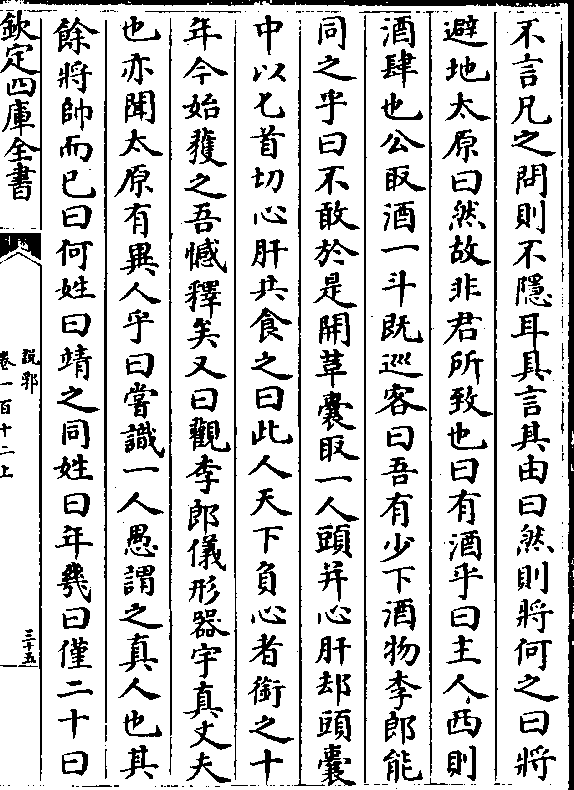 不言凡之問則不隱耳具言其由曰然則將何之曰將
避地太原曰然故非君所致也曰有酒乎曰主人西則
酒肆也公取酒一斗既巡客曰吾有少下酒物李郎能
同之乎曰不敢於是開革囊取一人頭并心肝却頭囊
中以匕首切心肝共食之曰此人天下負心者銜之十
年今始獲之吾憾釋矣又曰觀李郎儀形器宇真丈夫
也亦聞太原有異人乎曰嘗識一人愚謂之真人也其
餘將帥而已曰何姓曰靖之同姓曰年幾曰僅二十曰
欽定四庫全書
說郛
卷一百十二上
三十五